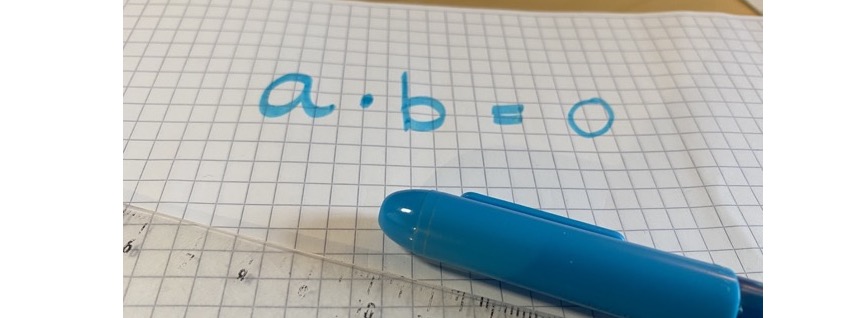 a · b = 0